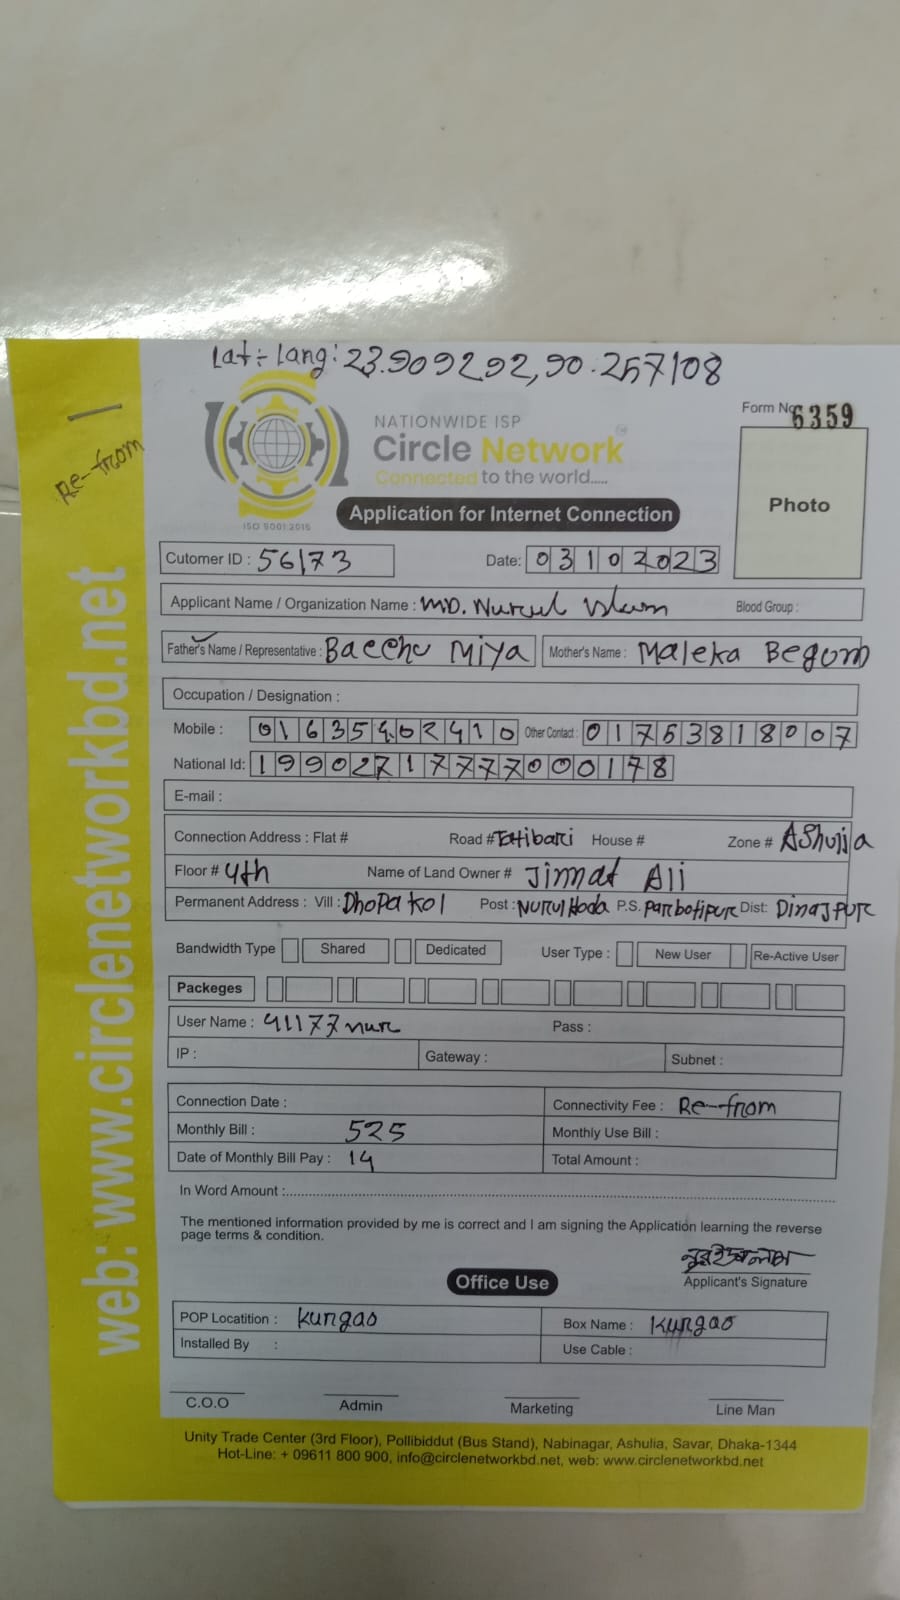 Lat÷Lang: 23.909292,90.257108
Form No. 6359
NATIONWIDE ISP
Circle Network
Connected to the world.....
ISO 9001:2015
Application for Internet Connection
Photo
Re-from
web: www.circlenetworkbd.net
Cutomer ID : 56173 Date: 03102023
Applicant Name / Organization Name : MD. Nurul Islam Blood Group :
Father's Name / Representative : Bacchu Miya Mother's Name : Maleka Begom
Occupation / Designation :
Mobile : 01635402410 Other Contact : 01753818007
National Id: 19902717777000178
E-mail :
Connection Address : Flat # Road # House # Zone # AShulia
Floor # 4th Name of Land Owner # Jinnat Ali
Permanent Address : Vill : Dhopakol Post : NurulHoda P.S. Parbotipur Dist: Dinajpur
Bandwidth Type Shared Dedicated User Type : New User Re-Active User
Packeges
User Name : 41177nur Pass :
IP : Gateway : Subnet :
Connection Date : Connectivity Fee : Re-from
Monthly Bill : 525 Monthly Use Bill :
Date of Monthly Bill Pay : 14 Total Amount :
In Word Amount :
The mentioned information provided by me is correct and I am signing the Application learning the reverse
page terms & condition.
Applicant's Signature
Office Use
POP Locatition : Kungao Box Name : Kungao
Installed By : Use Cable :
C.O.O Admin Marketing Line Man
Unity Trade Center (3rd Floor), Pollibiddut (Bus Stand), Nabinagar, Ashulia, Savar, Dhaka-1344
Hot-Line: + 09611 800 900, info@circlenetworkbd.net, web: www.circlenetworkbd.net